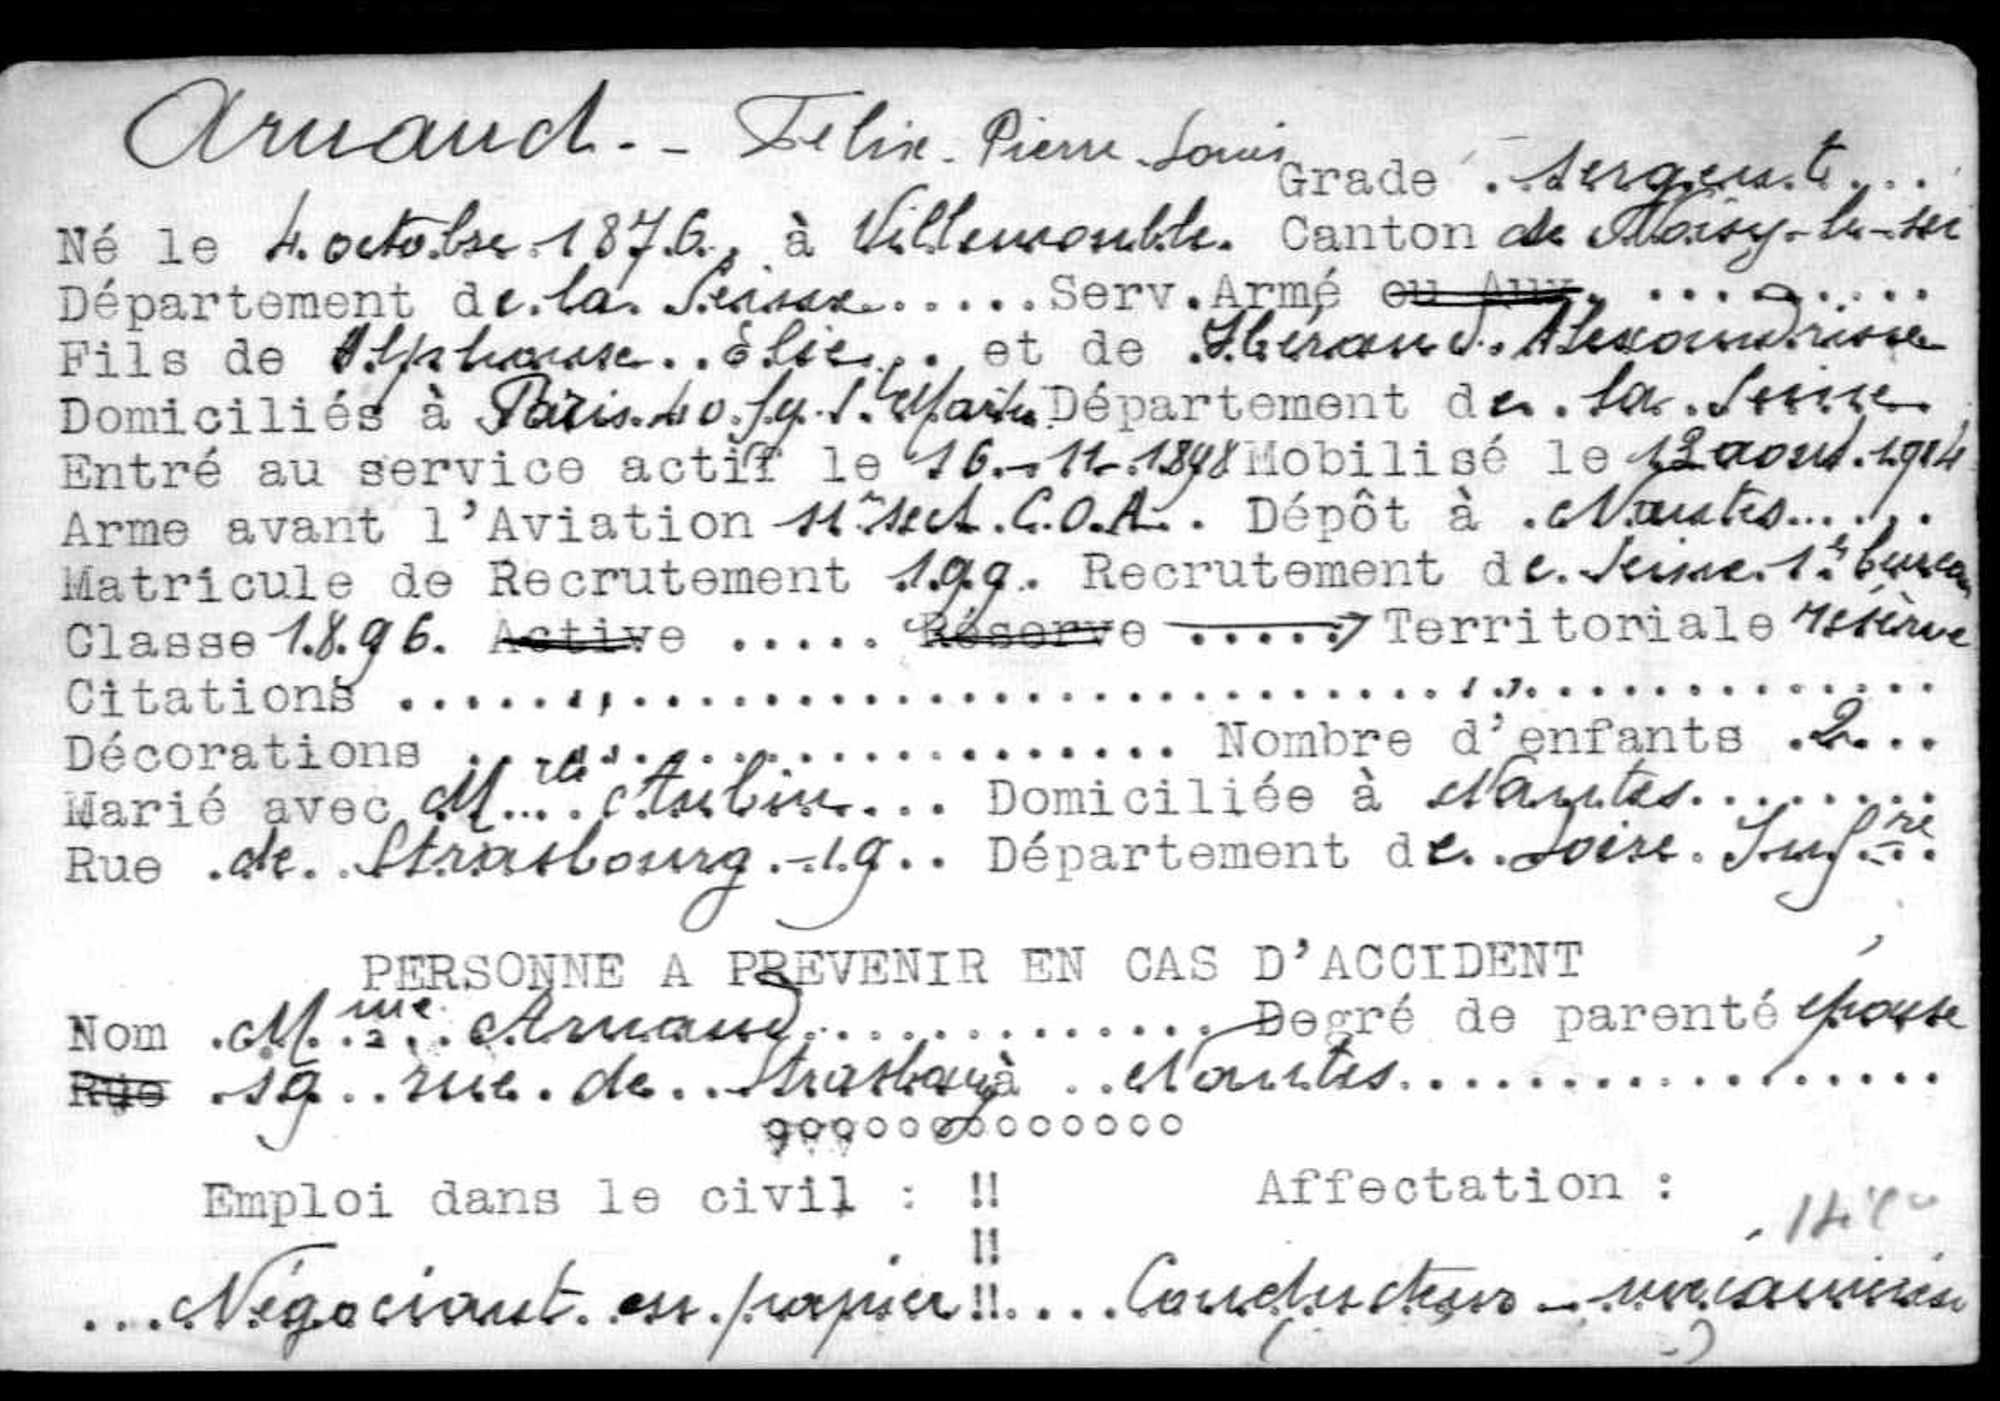 Arnaud - Félix Pierre Louis
Grade sergent
Né le 4 octobre 1876, à Villemomble. Canton de Noisy-le-sec
Département de la Seine.....Serv.Armé ou Aux. .......
Fils de Alphonse Élie et de Hérand Alexandrine
Domiciliés à Paris 40 fg St Martin Département de la Seine
Entré au service actif le 16-11-1898 Mobilisé le 12 aout 1914
Arme avant l'Aviation 11e sect. C.O.A. Dépôt à Nantes.....
Matricule de Recrutement 199. Recrutement de Seine 1er bureau
Classe 1896. Active ..... Réserve ..... Territoriale réserve
Citations ...................................
Décorations ..................... Nombre d'enfants 2...
Marié avec Mlle Aubin... Domiciliée à Nantes........
Rue de Strasbourg - 19.. Département de Loire Infre
PERSONNE A PREVENIR EN CAS D'ACCIDENT
Nom Mme Arnaud.............. Degré de parenté épouse
Rue 19 rue de Strasbourg à Nantes.................
ooooooooooooo
Emploi dans le civil : !! Affectation :
!!
...Négociant en papier !!....Conducteur - mécanicien